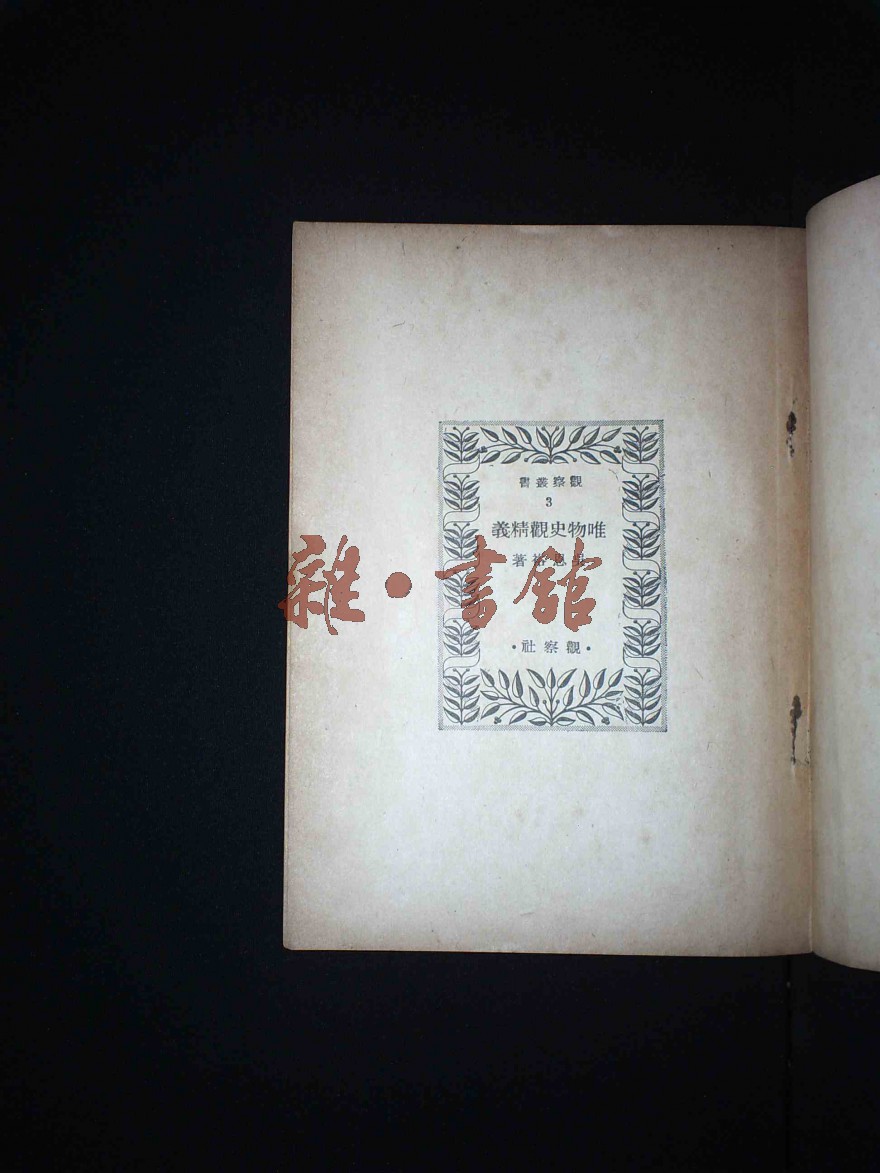 觀察叢書
3
唯物史觀精義
吳恩裕著
·觀察社·
雜·書館